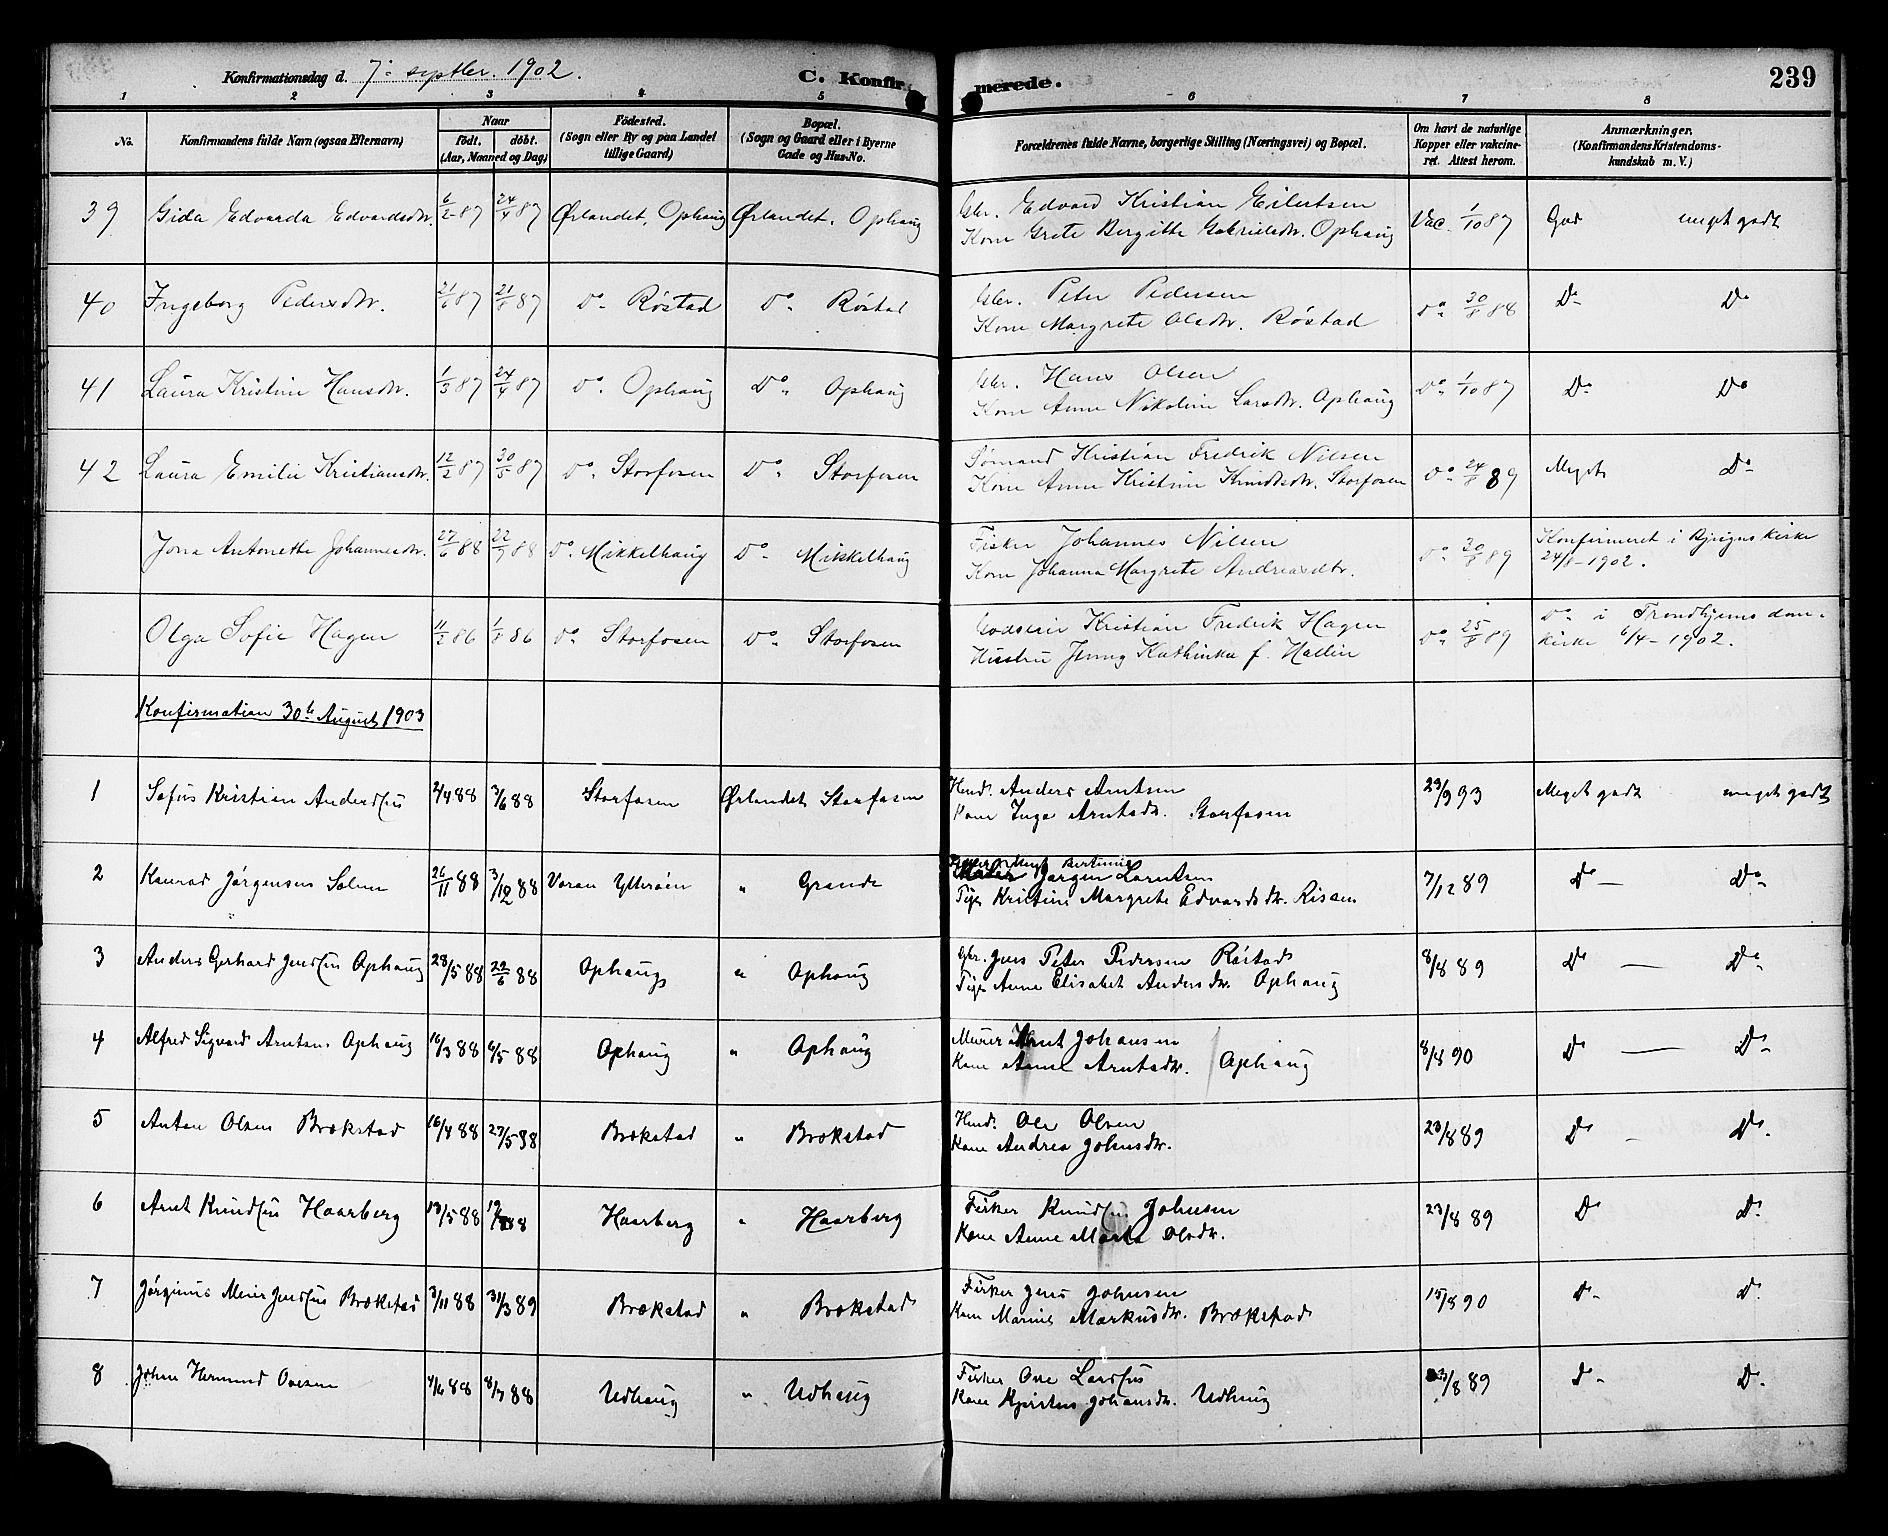 Konfirmationsdag d. 7: septbr. 1902.
C. Konfirmerede.
239
1 2 3 4 5 6 7 8
No.
Konfirmandens fulde Navn (ogsaa Efternavn)
Naar
födt. döbt.
(Aar, Maaned og Dag)
Födested.
(Sogn eller By og paa Landet
tillige Gaard)
Bopæl.
(Sogn og Gaard eller i Byerne
Gade og Hus-No.
Forældrenes fulde Navne, borgerlige Stilling (Næringsvei) og Bopæl.
Om havt de naturlige
Kopper eller vakcine-
ret. Attest herom.
Anmærkninger.
(Konfirmandens Kristendoms-
kundskab m. V.)
39 Gida Edvarda Edvardsdtr. 6/2 87 24/4 87 Ørlandet, Ophaug Ørlandet, Ophaug Gbr. Edvard Kristian Eilertsen Vac. 1/10 87 God meget godt
Kone Grete Bergitte Gabrielsdtr. Ophaug
40 Ingeborg Pedersdtr. 21/6 87 21/8 87 Do. Røstad Do. Røstad Gbr. Peter Pedersen Do. 30/8 88 Do Do
Kone Margrete Olsdtr. Røstad
41 Laura Kristine Hansdtr. 1/3 87 24/4 87 Do. Ophaug Do. Ophaug Gbr. Hans Olsen Do. 1/10 87 Do Do
Kone Anne Nikoline Larsdtr. Ophaug
42 Laura Emilie Kristiansdtr. 12/2 87 30/5 87 Do. Storfosen Do. Storfosen Sømand Kristian Fredrik Nilsen Do. 24/8 89 Meget Do
Kone Anne Kristine Knudtsdtr. Storfosen
Jona Antonette Johannesdtr. 27/6 88 22/7 88 Do. Mikkelhaug Do. Mikkelhaug Fisker Johannes Nilsen Do. 30/8 89 Konfirmeret i Bjugns kirke
Kone Johanna Margrete Andreasdtr. 24/8-1902.
Olga Sofie Hagen 11/2 86 1/8 86 Do. Storfosen Do. Storfosen Godseier Kristian Fredrik Hagen Do. 25/8 89 Do. i Trondhjems dom-
Hustru Jenny Kathinka f. Hallin kirke 6/4-1902.
Konfirmation 30te August 1903
1 Sofus Kristian Andersen 2/4 88 3/6 88 Storfosen Ørlandet Storfosen Husmd. Anders Arntsen 23/9 93 Meget godt meget godt
Kone Inga Arntsdtr. Storfosen
2 Konrad Jørgensen Solem 26/11 88 3/12 88 Ytterøen " Grande Jørgen Larntsen 7/12 89 Do Do
Pige Kristine Margrete Edvardsdtr. Rissen
3 Anders Gerhard Jenssen Ophaug 28/5 88 22/6 88 Ophaug " Ophaug Gbr. Jens Peter Pedersen Røstad 8/8 89 Do Do
Pige Anne Elisabet Andersdtr. Ophaug
4 Alfred Sigvard Arntsen Ophaug 16/3 88 6/5 88 Ophaug " Ophaug Murer Arnt Johansen 8/8 90 Do Do
Kone Anne Arntsdtr. Ophaug
5 Anton Olsen Brækstad 16/4 88 27/5 88 Brækstad " Brækstad Husmd. Ole Olsen 23/8 89 Do Do
Kone Andrea Johnsdtr.
6 Arnt Knudsen Haarberg 13/5 88 Haarberg " Haarberg Fisker Knud Johnsen 23/8 89 Do Do
Kone Anne Marta Olsdtr.
7 Jørginus Meier Jenssen Brækstad 3/11 88 31/3 89 Brækstad " Brækstad Fisker Jens Johnsen 15/8 90 Do Do
Kone Marine Markusdtr. Brækstad
8 Johan Hermund Ovesen 4/6 88 8/7 88 Udhaug " Udhaug Fisker Ove Larssen 23/8 89 Do Do
Kone Kjersten Johansdtr. Udhaug